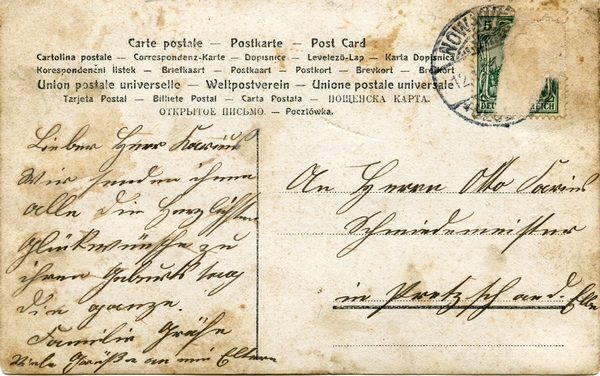 Carte postale — Postkarte — Post Card
Cartolina postale — Correspondenz-Karte — Dopisnice — Levelező-Lap — Karta Dopisnica
Korespondenční listek — Briefkaart — Postkaart — Postkort — Brevkort — Brefkort
Union postale universelle — Weltpostverein — Unione postale universale
Tarjeta Postal — Bilhete Postal — Carta Postala — ПОЩЕНСКА КАРТА.
ОТКРЫТОЕ ПИСЬМО. — Pocztówka.
NOW
5
REICH
Lieber Herr Karius
Wir senden ihnen
alle die Herzlichsten
Glückwünsche zu
ihren Geburtstag
die ganze.
Familie Gräfe
Viele Grüße an Eltern
An Herrn Otto Karius
Schmiedemeister
in Pretzsch a. d. Elbe